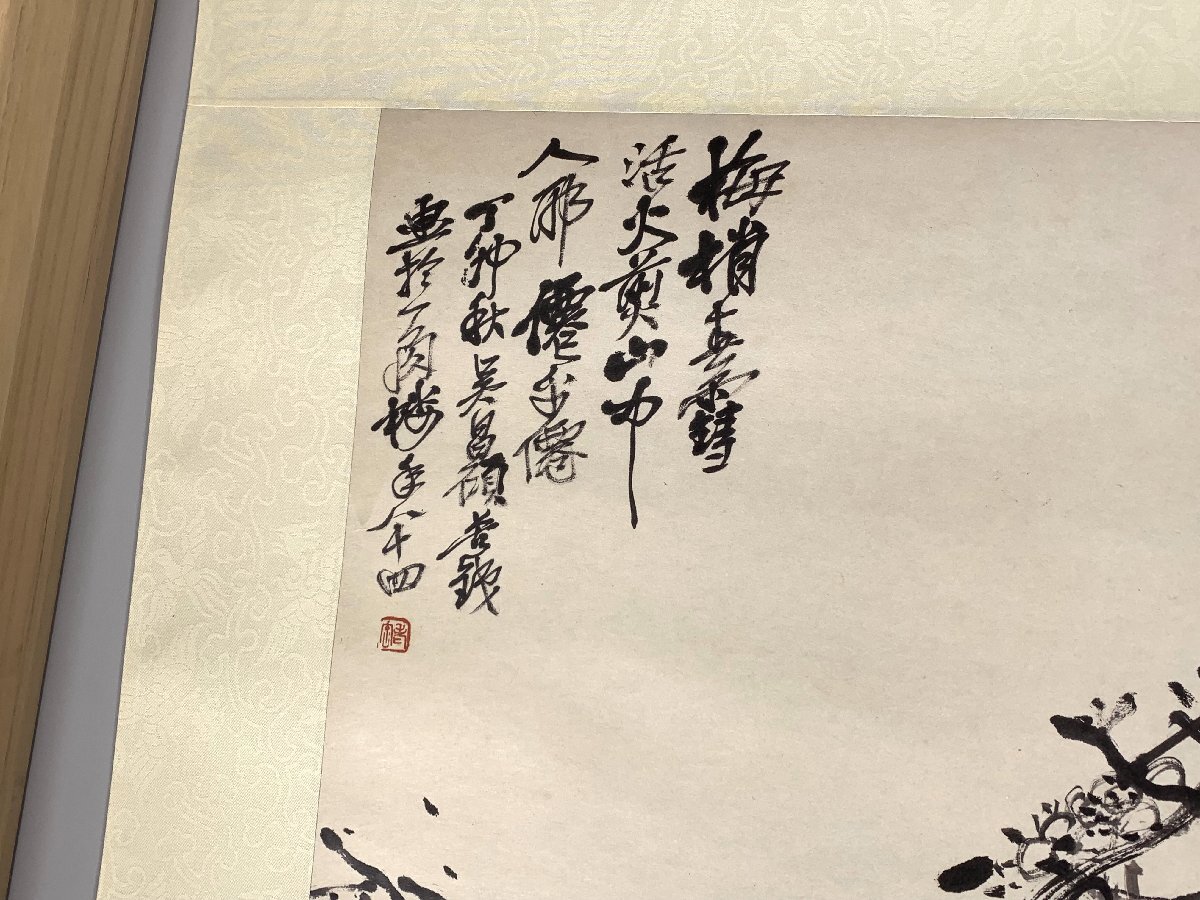 梅梢春雪
活火煎山中
人耶僊乎僊
丁卯秋吳昌碩苦鐵
畫於一角樓年八十四